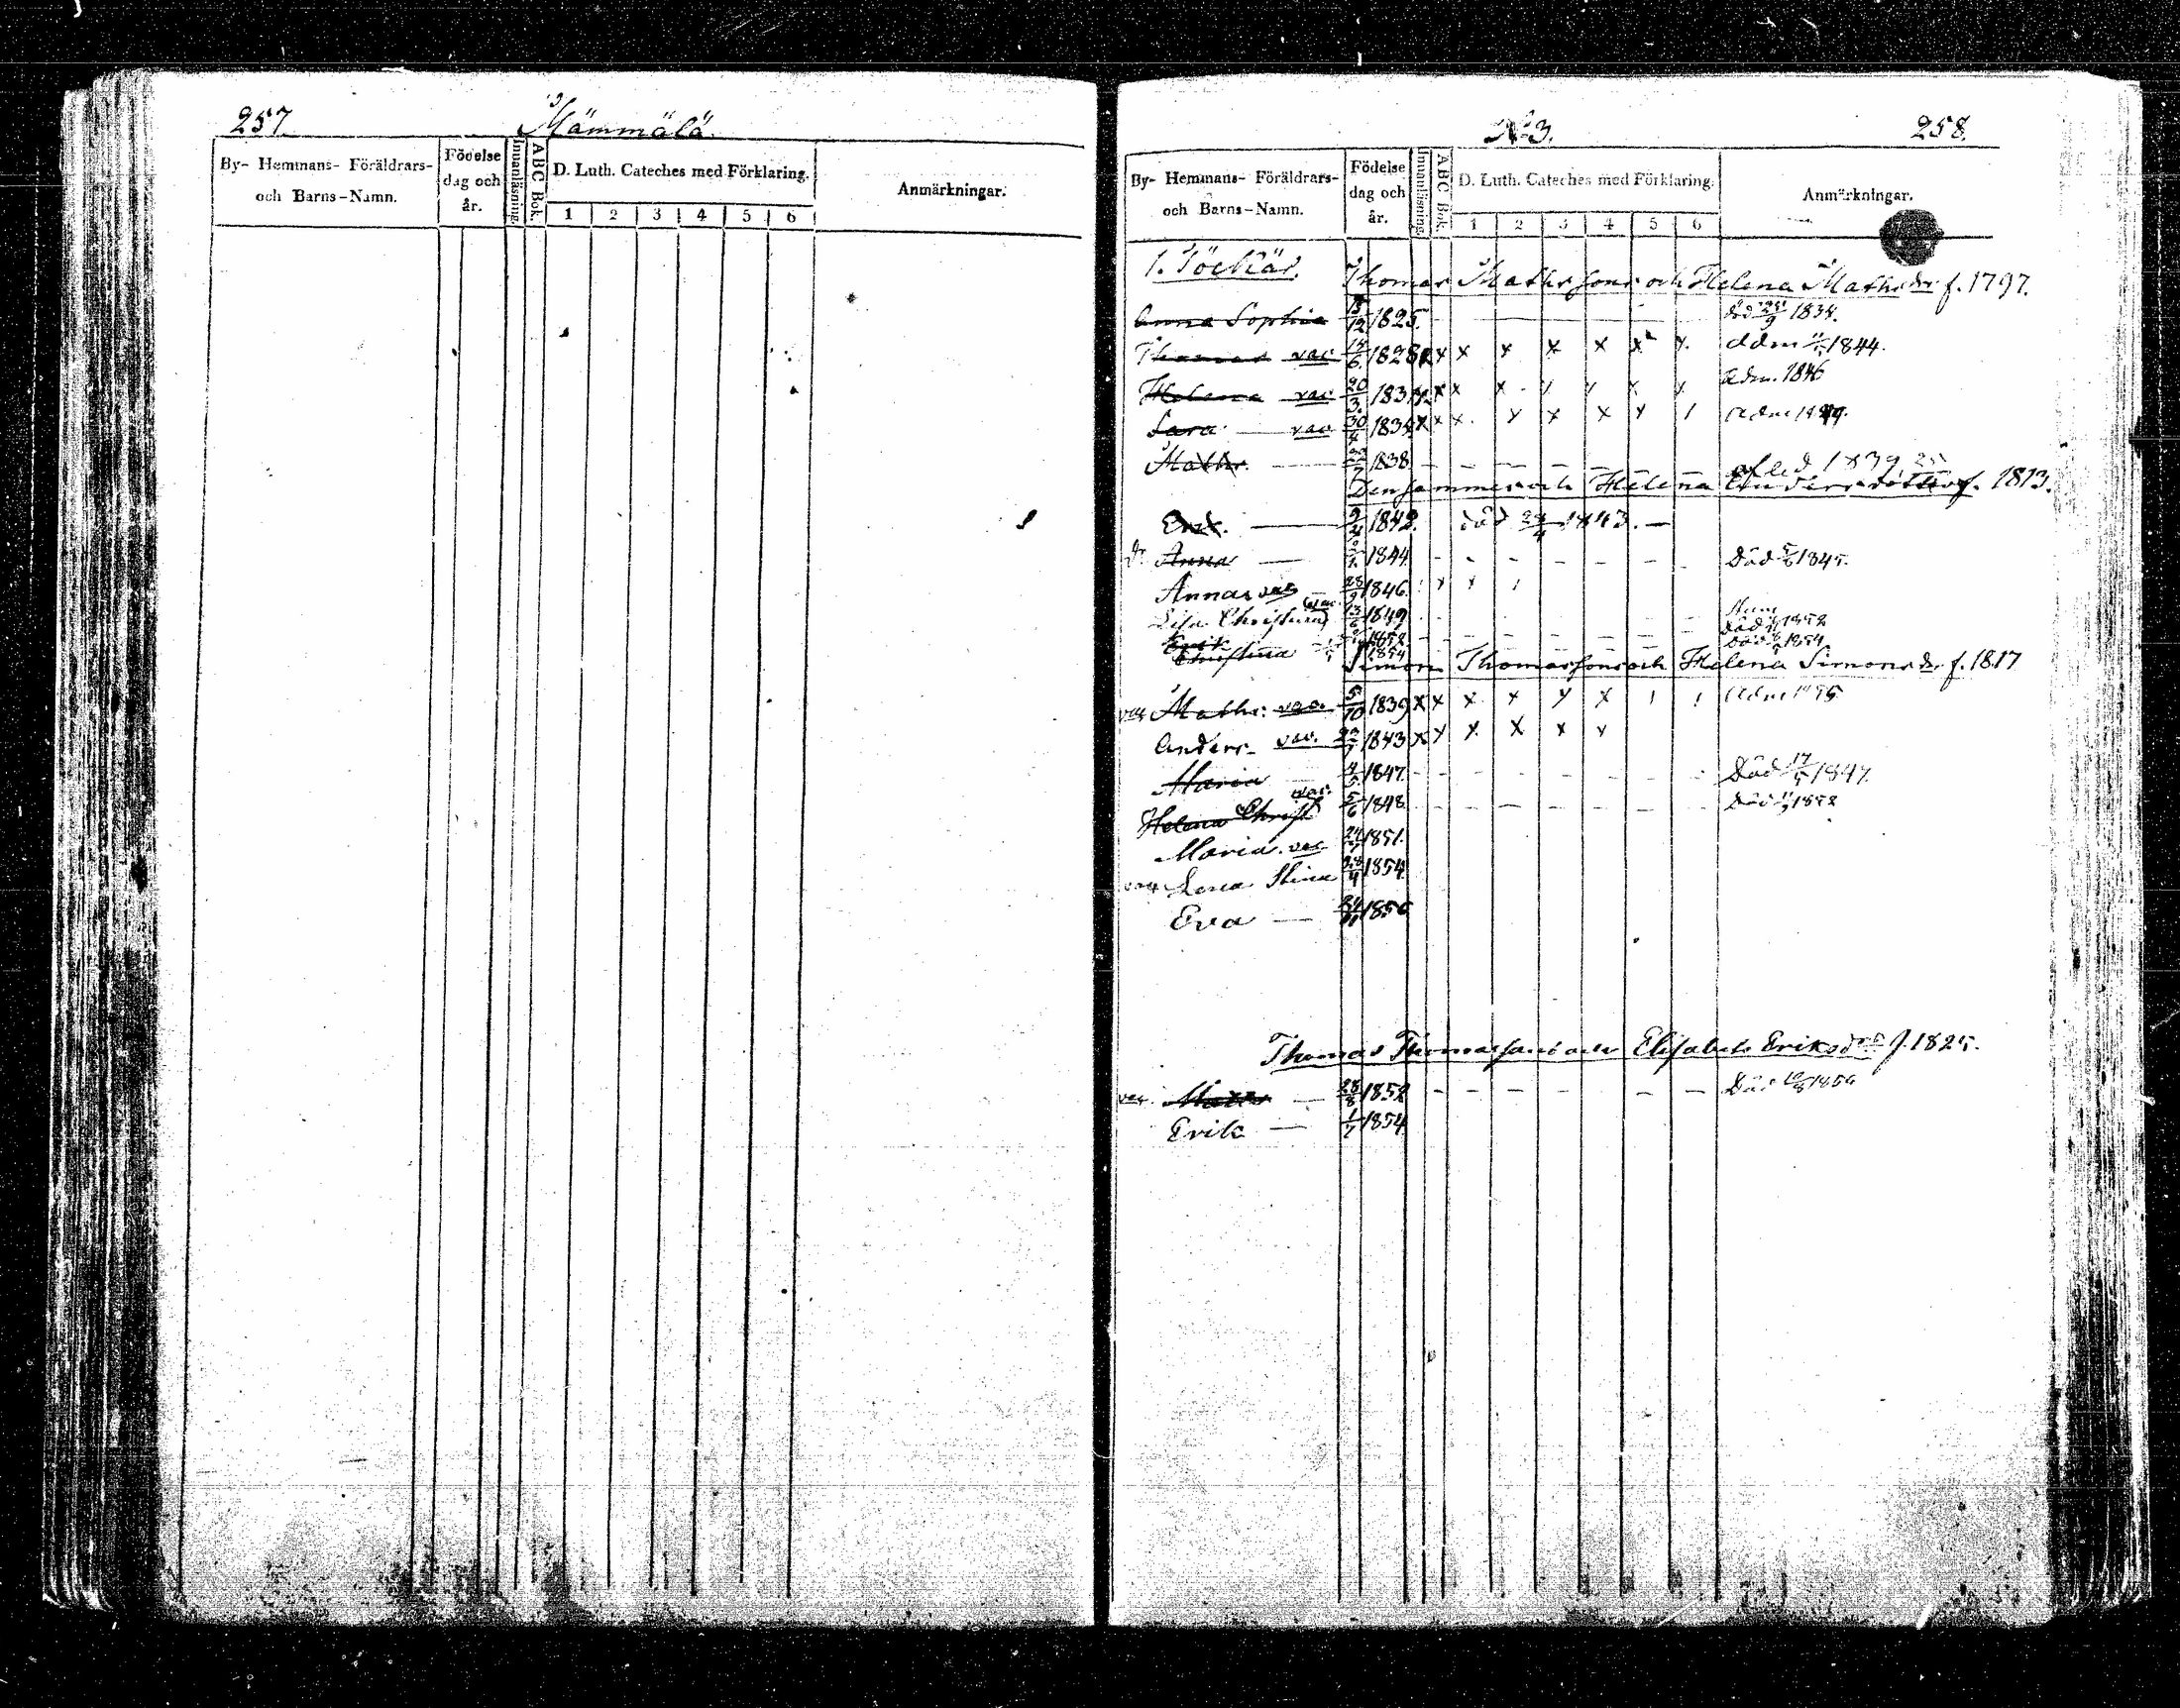 257. Mämmälä
By- Hemmans- Föräldrars- och Barns-Namn.
Födelse dag och år.
Innanläsning.
ABC Bok.
D. Luth. Cateches med Förklaring.
1 2 3 4 5 6
Anmärkningar.
No 3. 258.
By- Hemmans- Föräldrars- och Barns-Namn.
Födelse dag och år.
Innanläsning.
ABC Bok.
D. Luth. Cateches med Förklaring.
1 2 3 4 5 6
Anmärkningar.
Thomas Mathsson och Helena Mathsdr f. 1797.
Anna Sophia 1825. död 1834.
Thomas vac 14/6 1828 x x x x x x x adm 1844.
Helena vac 20/3 183 x x x x x x x adm. 1846
Sara vac 30/4 183 x x x x x x adm
Maths 1838 afled 1839
Densamme och Helena Andersdotter f. 1813.
Erik 1842. död 1843.
Anna 1844 Död 1845.
Anna vac 28/9 1846.
Lisa Christina vac. 13/6 1849
Erik
Christina 1854
Simon Thomasson och Helena Simonsdr f. 1817
vac Maths: vac. 5/10 1839 x x x x x x adm
Anders vac. 1843 x x x x x x
Maria 4/5 1847. Död 17/5 1847.
Helena Christ vac. 5/6 1848. Död
Maria vac 1851.
vac Lena Stina 28/4 1854.
Eva 1856
Thomas Thomasson och Elisabeth Eriksdotter f. 1825.
vac. Maths 28/8 1852 Död
Erik 1/7 1854